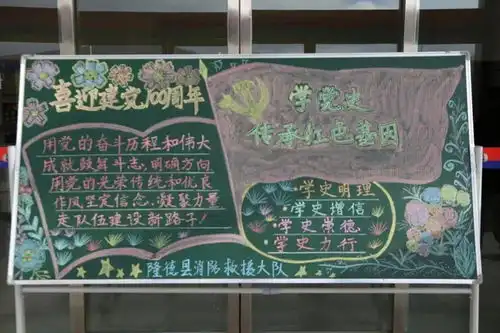 喜迎建党100周年
用党的奋斗历程和伟大
成就鼓舞斗志,明确方向
用党的光荣传统和优良
作风坚定信念、凝聚力量
走队伍建设新路子!
学党史
传承红色基因
·学史明理
·学史增信
·学史崇德
·学史力行
隆德县消防救援大队